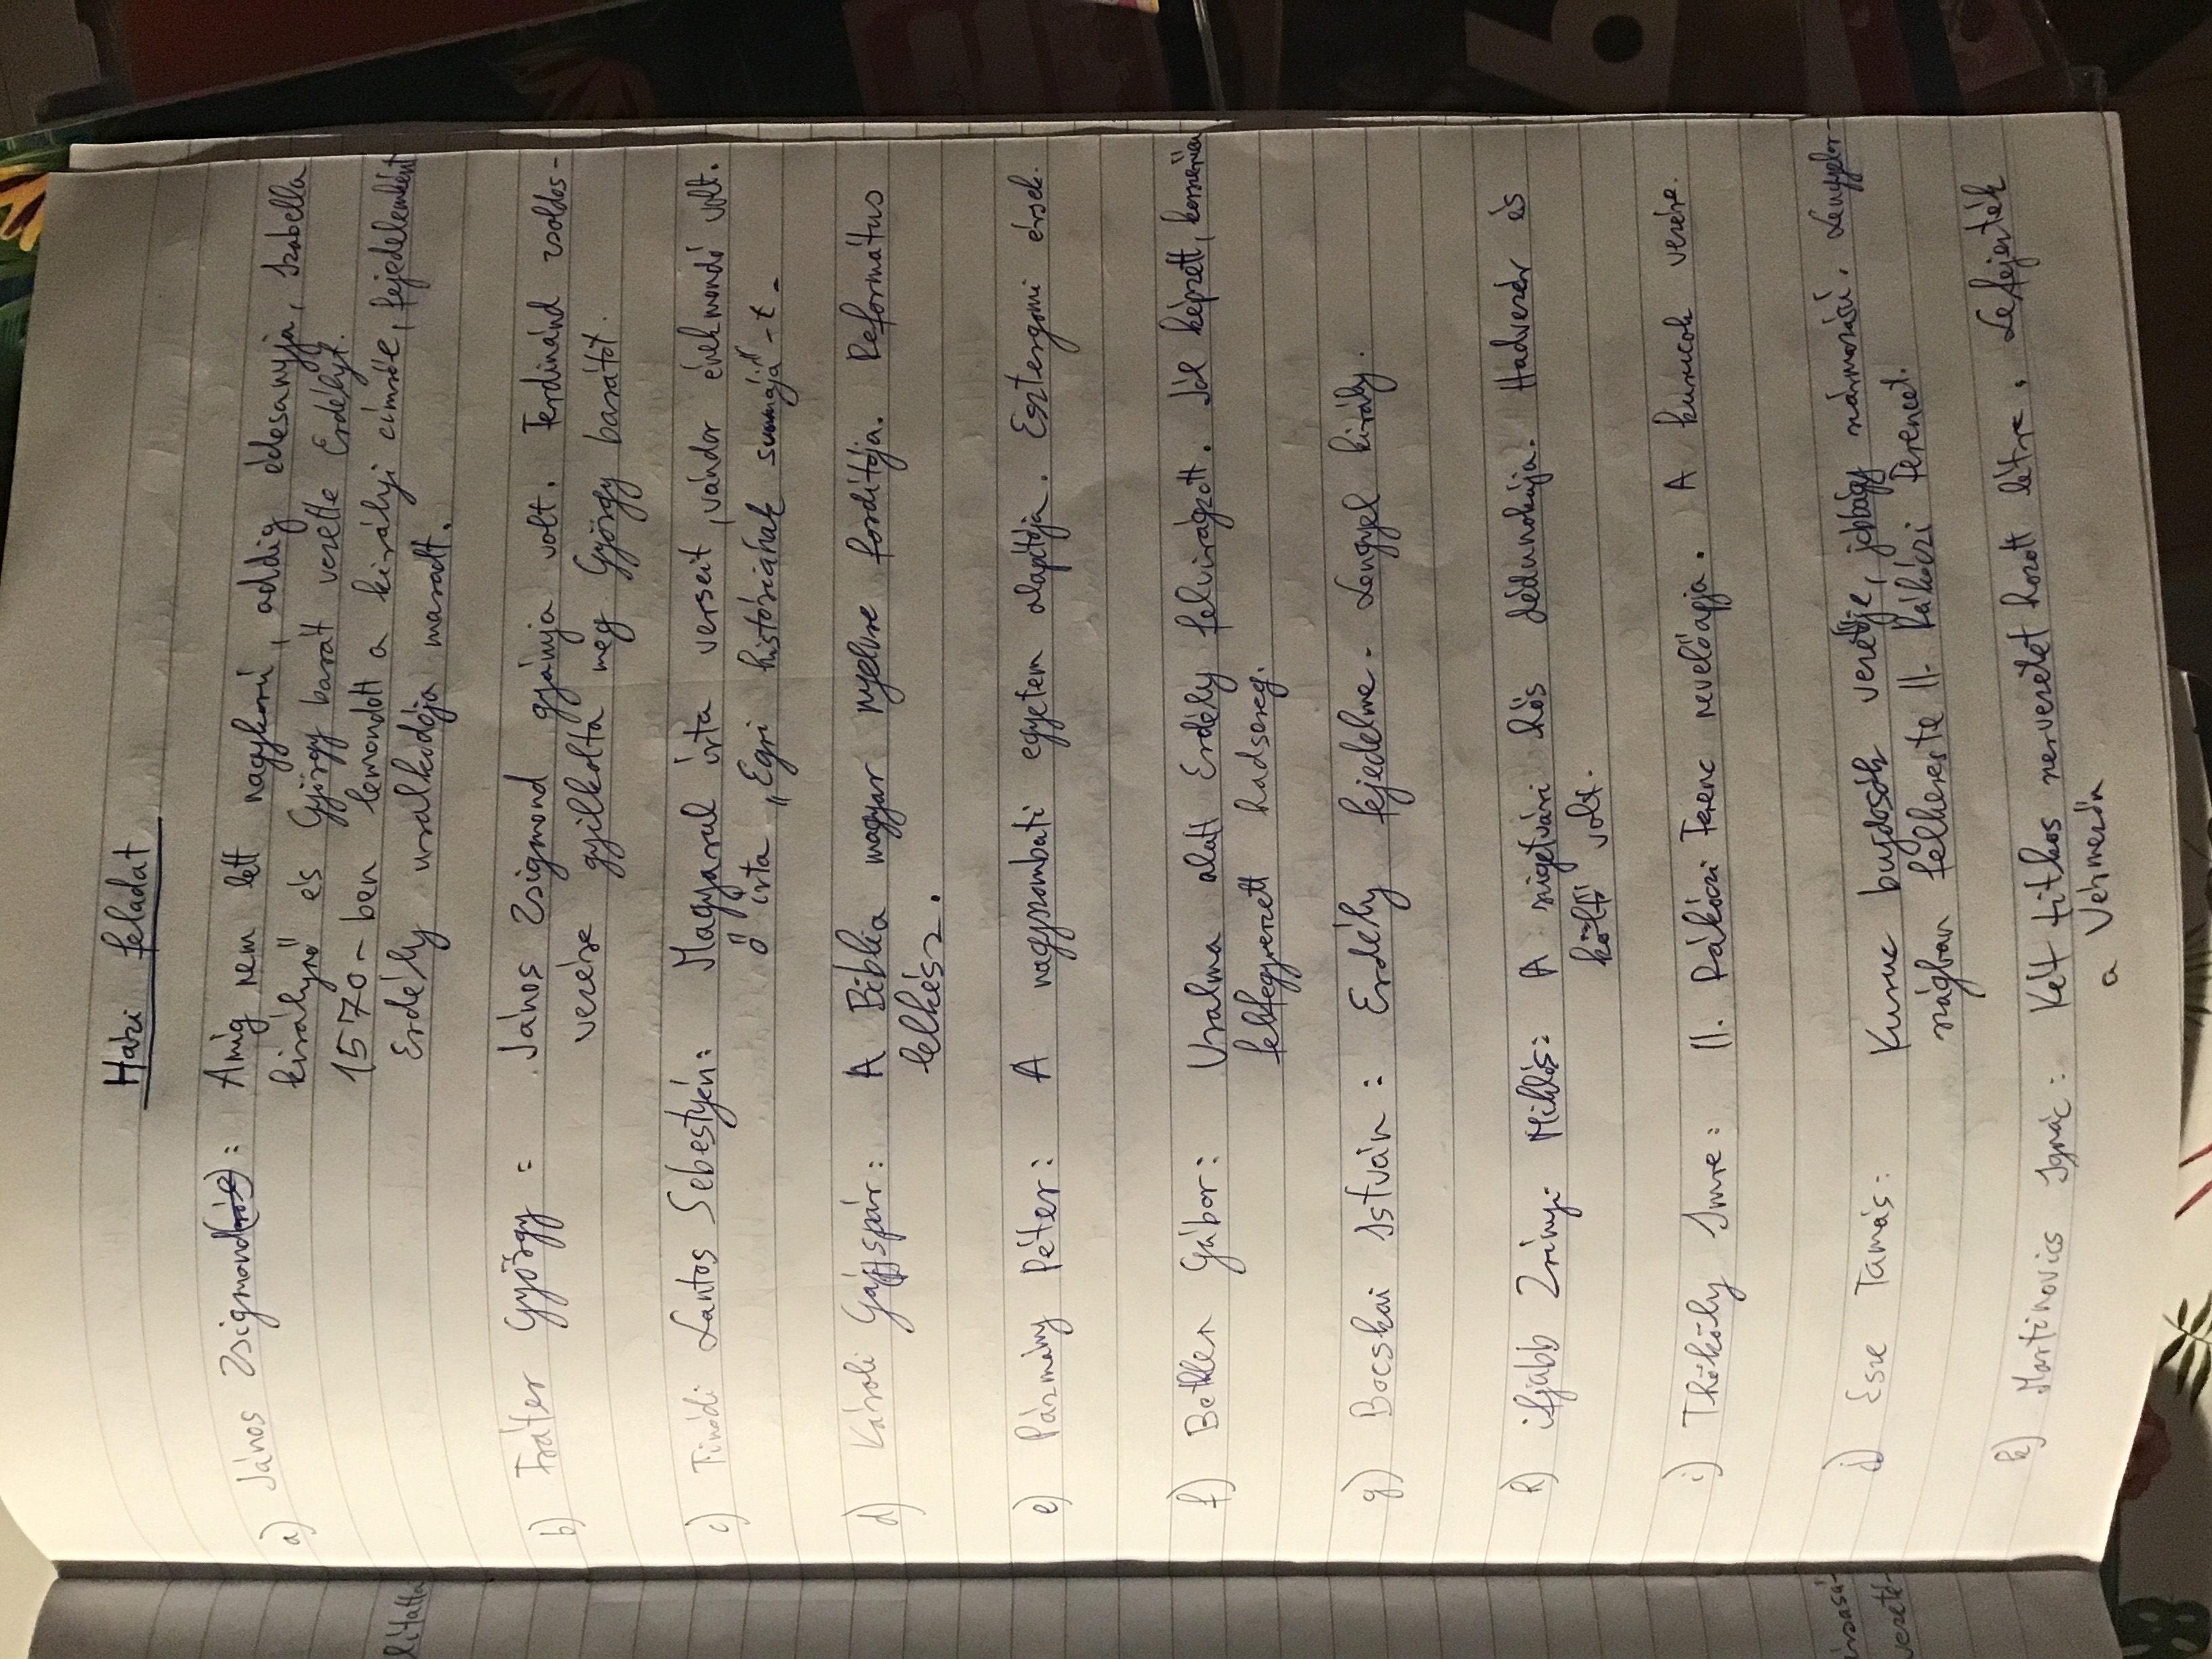 Házi feladat
a) János Zsigmond: Amíg nem lett nagykorú, addig édesanyja, Izabella
királynő és György barát vezette Erdélyt.
1570-ben lemondott a királyi címről, fejedelemként
Erdély uralkodója maradt.
b) Fráter György = János Zsigmond gyámja volt. Ferdinánd zsoldos-
vezére gyilkolta meg György barátot.
c) Tinódi Lantos Sebestyén: Magyarul írta verseit, vándor énekmondó volt.
ő írta „Egri históriának summájá"-t.
d) Károli Gáspár: A Biblia magyar nyelvre fordítója. Református
lelkész.
e) Pázmány Péter: A nagyszombati egyetem alapítója. Esztergomi érsek.
f) Bethlen Gábor: Uralma alatt Erdély felvirágzott. Jól képzett, korszerűen
felfegyverzett hadsereg.
g) Bocskai István: Erdély fejedelme. Lengyel király.
h) ifjabb Zrínyi Miklós: A szigetvári hős dédunokája. Hadvezér és
költő volt.
i) Thököly Imre: II. Rákóczi Ferenc nevelőapja. A kurucok vezére.
j) Esze Tamás: Kuruc bujdosók vezetője, jobbágy származású. Lengyelor-
szágban felkereste II. Rákóczi Ferencet.
k) Martinovics Ignác: Két titkos szervezetet hozott létre. Lefejezték
a Vérmezőn
lítatta
vezeté-